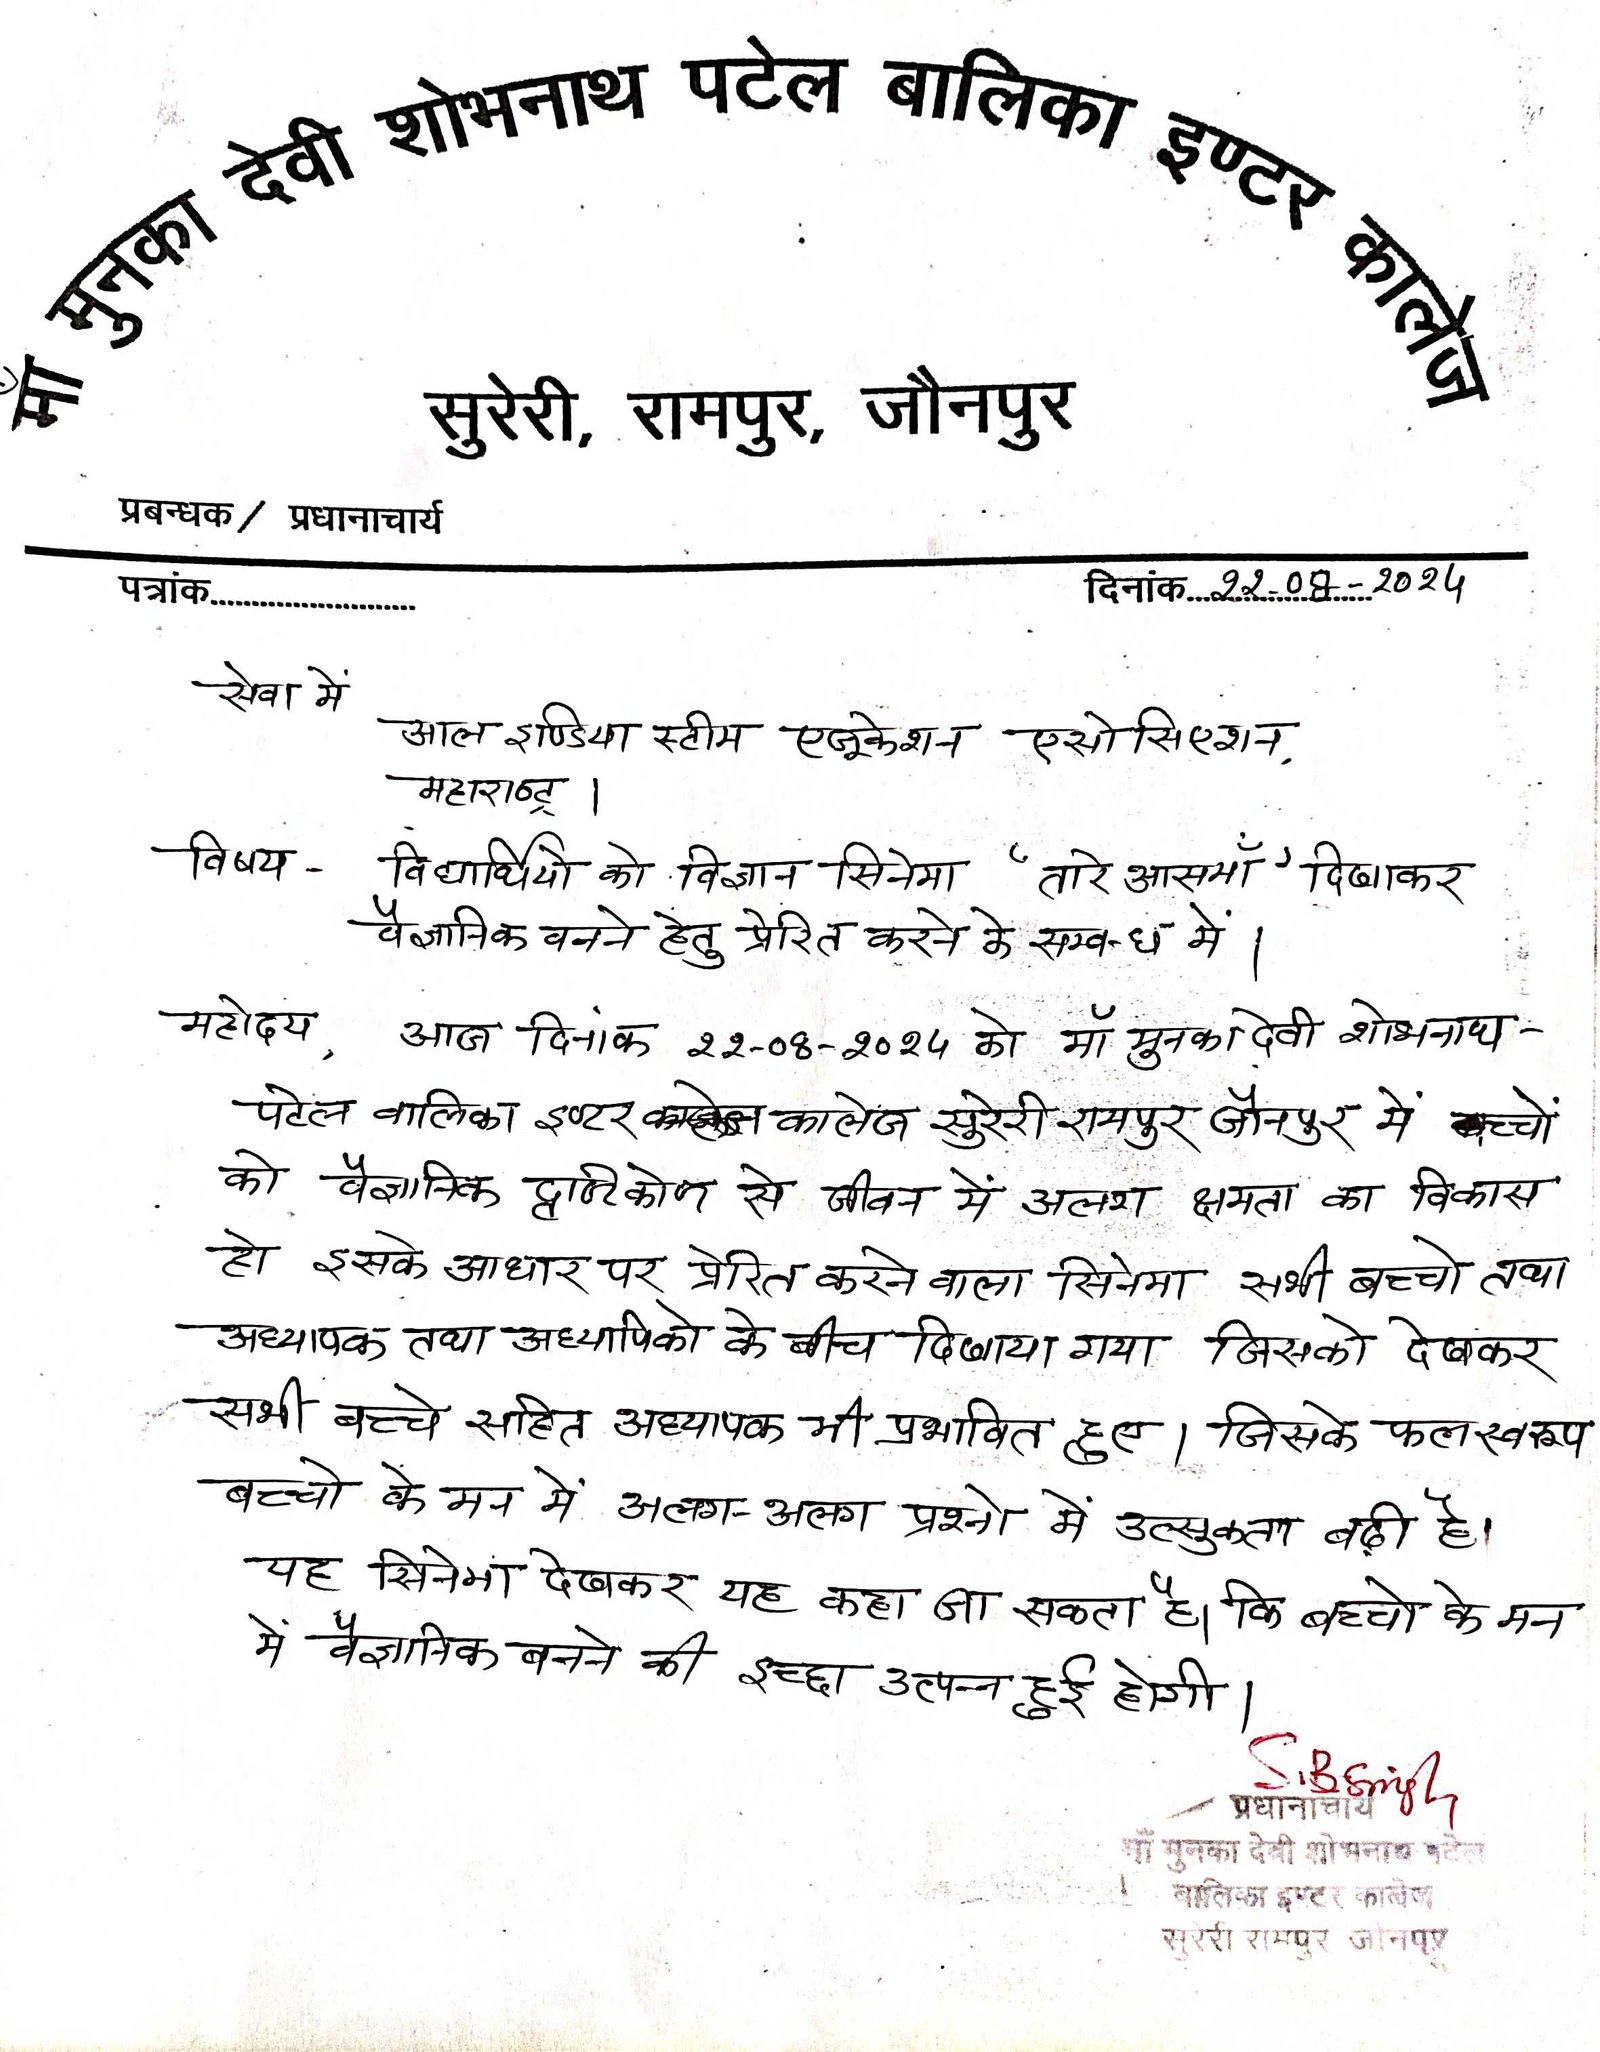 माँ मुनका देवी शोभनाथ पटेल बालिका इण्टर कालेज
सुरेरी, रामपुर, जौनपुर
प्रबन्धक/ प्रधानाचार्य
पत्रांक.........................
दिनांक...22-08-2024
सेवा में
आल इण्डिया स्टीम एजूकेशन एसोसिएशन,
महाराष्ट्र ।
विषय - विद्यार्थियो को विज्ञान सिनेमा 'तारे आसमाँ' दिखाकर
वैज्ञानिक बनने हेतु प्रेरित करने के सम्बन्ध में ।
महोदय, आज दिनांक 22-08-2024 को माँ मुनका देवी शोभनाथ-
पटेल बालिका इण्टर कालेज सुरेरी रामपुर जौनपुर में बच्चों
को वैज्ञानिक दृष्टिकोण से जीवन में अलग क्षमता का विकास
हो इसके आधार पर प्रेरित करने वाला सिनेमा सभी बच्चो तथा
अध्यापक तथा अध्यापिको के बीच दिखाया गया जिसको देखकर
सभी बच्चे सहित अध्यापक भी प्रभावित हुए । जिसके फलस्वरूप
बच्चो के मन में अलग-अलग प्रश्नो में उत्सुकता बढ़ी है।
यह सिनेमा देखकर यह कहा जा सकता है। कि बच्चो के मन
में वैज्ञानिक बनने की इच्छा उत्पन्न हुई होगी ।
S.B Singh
प्रधानाचार्य
माँ मुनका देवी शोभनाथ पटेल
बालिका इण्टर कालेज
सुरेरी रामपुर जौनपुर